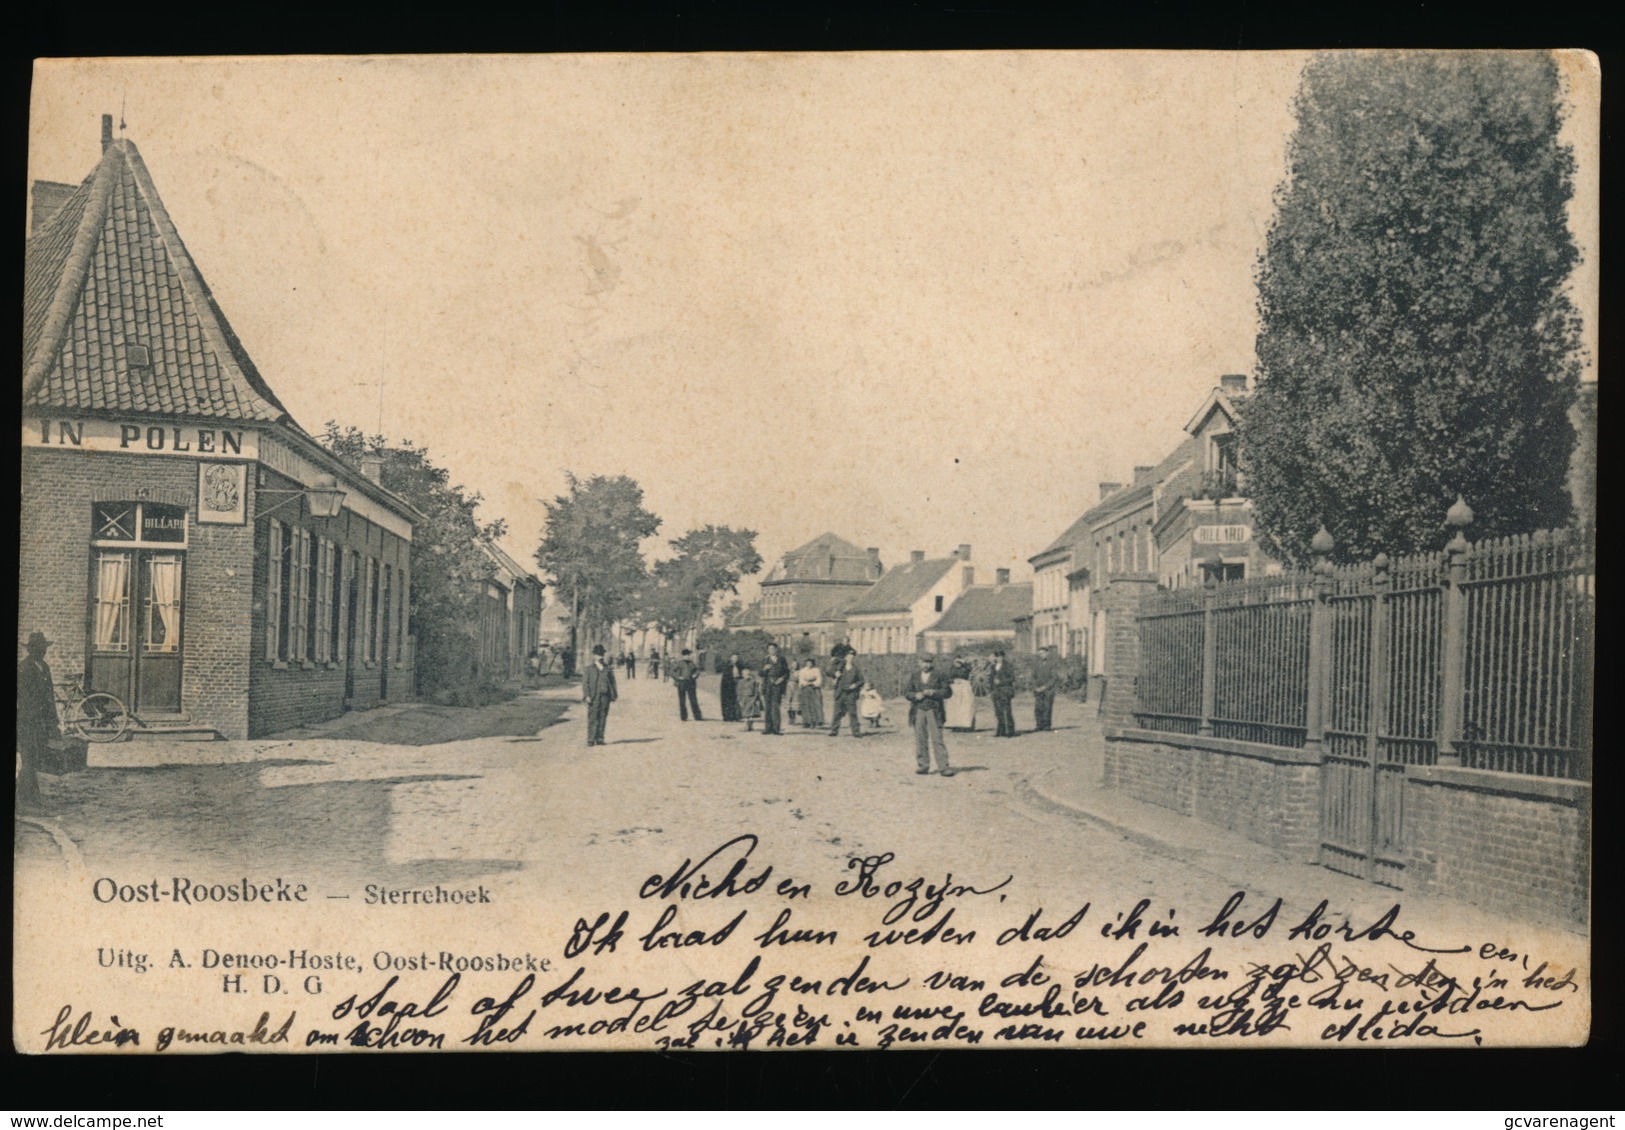 IN POLEN
BILLARD
BILLARD
Oost-Roosbeke — Sterrehoek
Uitg. A. Denoo-Hoste, Oost-Roosbeke
H. D. G
Nicht en Kozijn.
Ik laat hun weten dat ik in het korte een
staal of twee zal zenden van de schorten zal zenden in het
klein gemaakt om schoon het model te zien en uwe als wij ze nu uitdoen
zal ik het u zenden van uwe nicht Alida.
delcampe.net
gcvarenagent